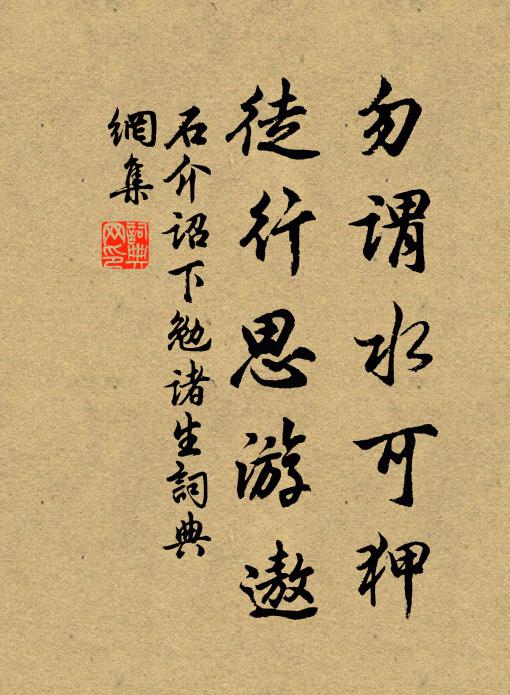 勿谓水可狎
徒行思游遨
石介诏下勉诸生词典
網集
詞典
网印